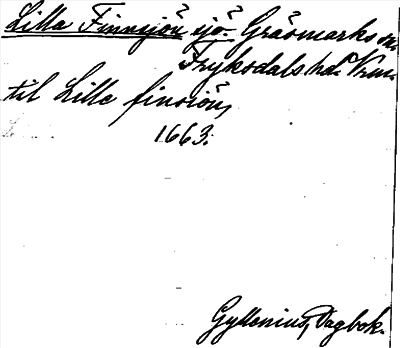 Lilla Finnsjön sjö. Gräsmarks sn.
Fryksdals hd. Vrml.
til Lille finsiön,
1663.
Gyllenius, Dagbok.